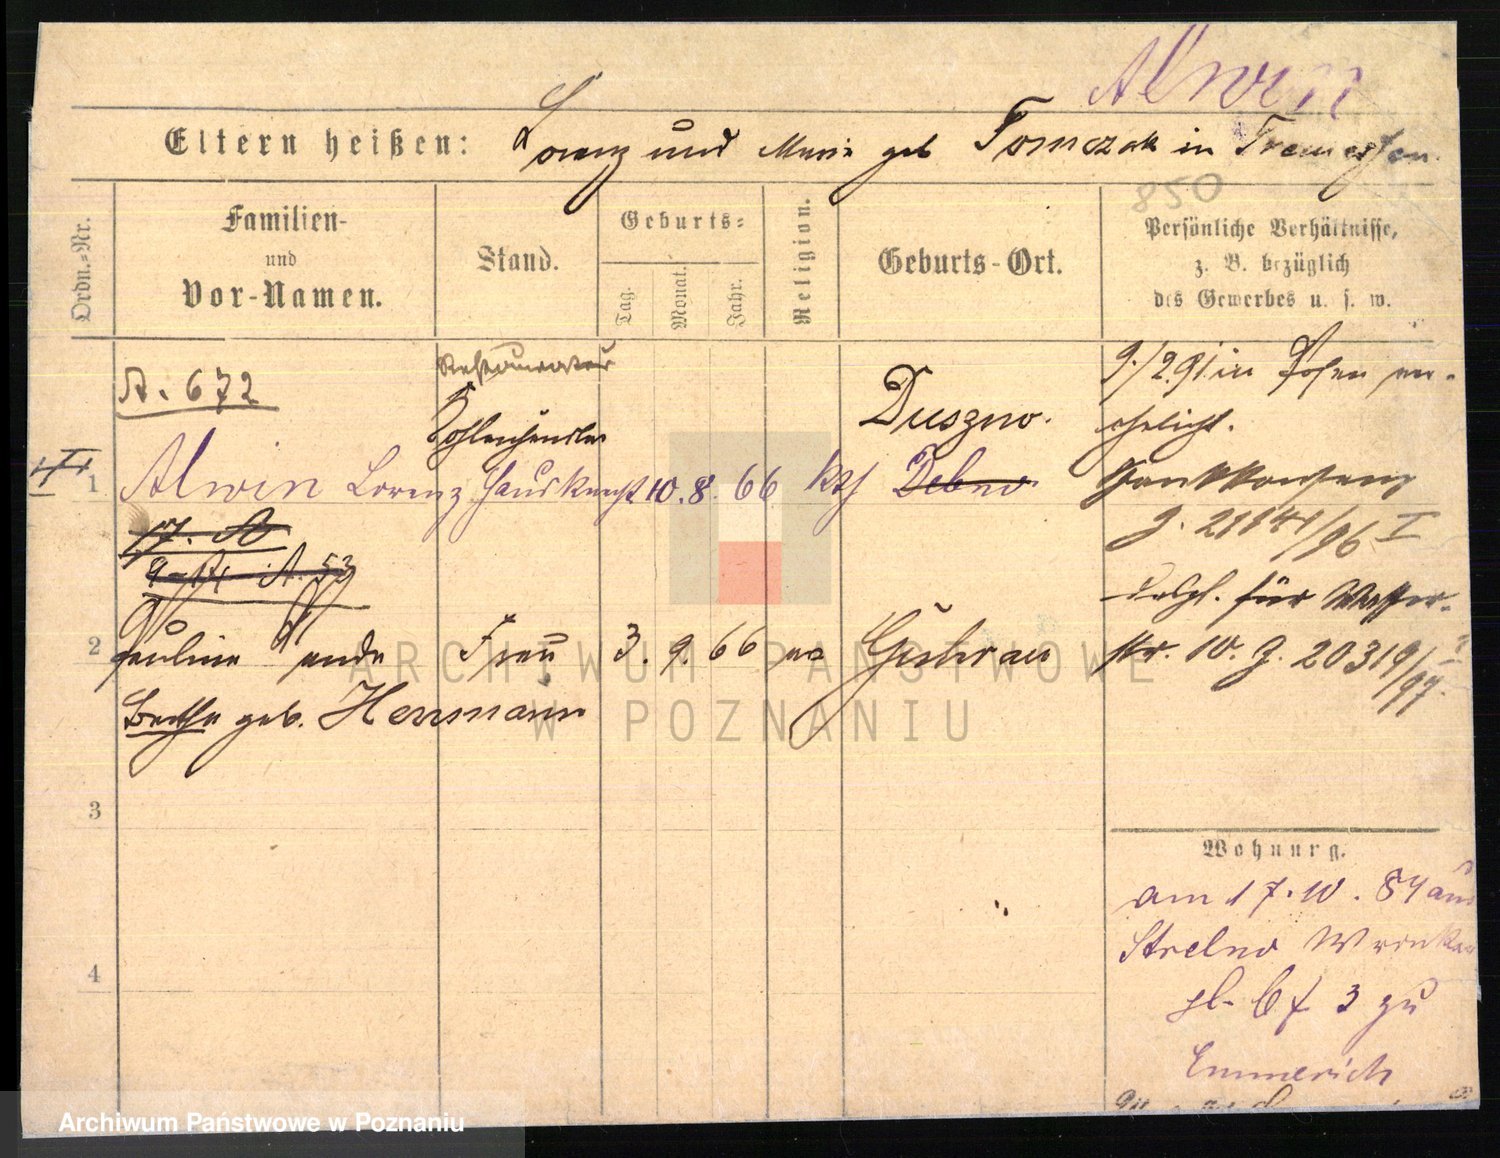 Alwin
Eltern heißen: Lorenz und Marie geb Tomczak in Tremessen.
850
Ordn.-Nr.
Familien-
und
Vor-Namen.
Stand.
Geburts-
Tag.
Monat.
Jahr.
Religion.
Geburts-Ort.
Persönliche Verhältnisse,
z. B. bezüglich
des Gewerbes u. s. w.
A. 672
Restaurateur
Kohlenhändler
Duszno.
9./2.91. in Posen ver-
ehelicht.
1 Alwin Lorenz Hausknecht 10. 8. 66 kth Debno
Schankkonsens
J. 21141/96 I
17. A
A. 53
desgl. für Wasser-
2 Pauline Frau 3. 9. 66 Guhrau
str. 10. J. 20319/97.
Bertha geb. Herrmann
3
Wohnung.
am 17. 10. 84 aus
Strelno Wronker
4
pl. 3 zu
Emmerich
ARCHIWUM PAŃSTWOWE
W POZNANIU
Archiwum Państwowe w Poznaniu